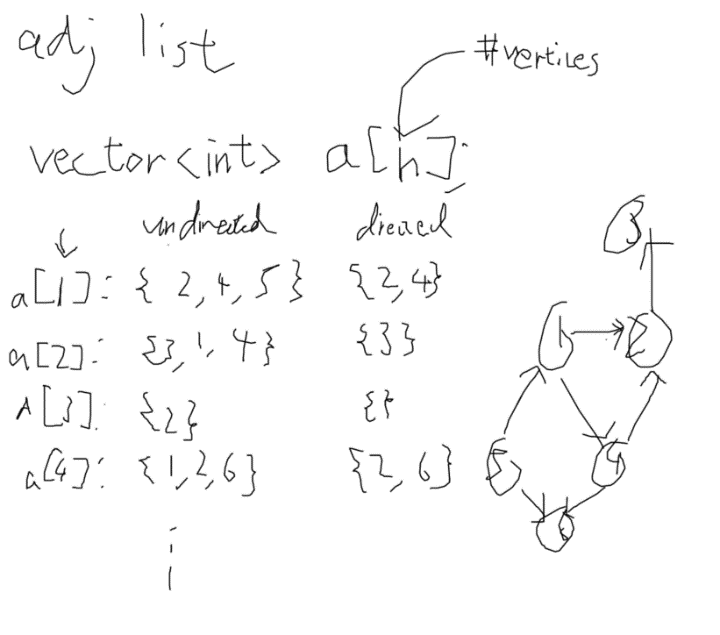 adj list
#vertices
vector<int> a[n];
undirected direced
a[1]: { 2, 4, 5 } {2, 4}
a[2]: {3, 1, 4} {3}
A[3]: {2} {}
a[4]: {1, 2, 6} {2, 6}
3
1 2
5 4
6